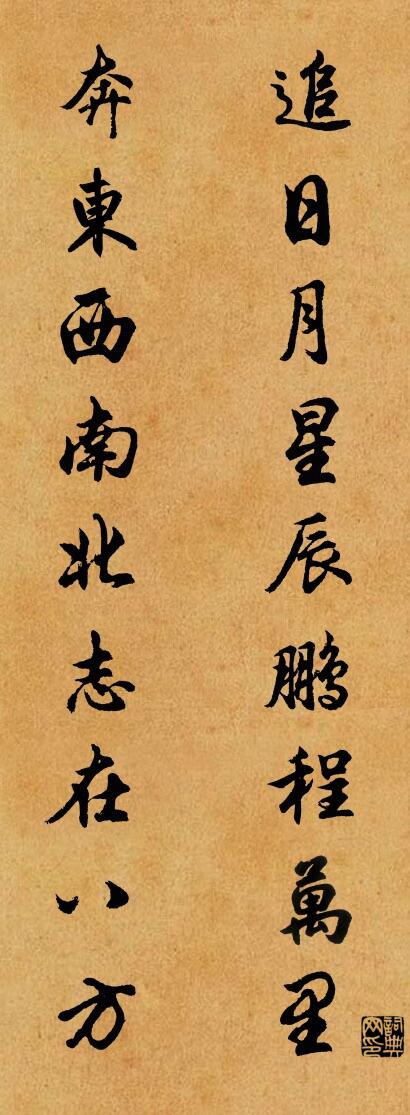 追日月星辰鹏程萬里
奔東西南北志在八方
詞典网印